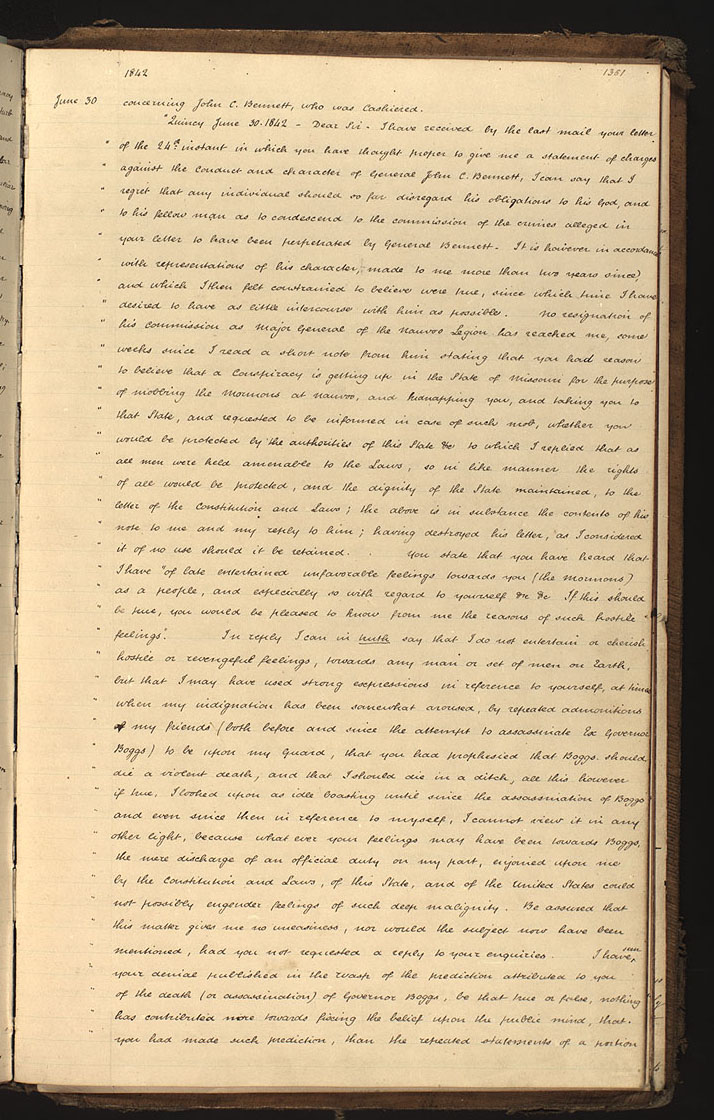 1842 1351
June 30 concerning John C. Bennett, who was Cashiered.
"Quincy June 30. 1842 - Dear Sir - I have received by the last mail your letter
" of the 24th instant in which you have thought proper to give me a statement of charges
" against the conduct and character of General John C. Bennett, I can say that I
" regret that any individual should so far disregard his obligations to his God, and
" to his fellow man as to condescend to the commission of the crimes alleged in
" your letter to have been perpetrated by General Bennett. It is however in accordance
" with representations of his character, made to me more than two years since,
" and which I then felt constrained to believe were true, since which time I have
" desired to have as little intercourse with him as possible. No resignation of
" his commission as Major General of the Nauvoo Legion has reached me, some
" weeks since I read a short note from him stating that you had reason
" to believe that a Conspiracy is getting up in the State of Missouri for the purpose
" of mobbing the Mormons at Nauvoo, and kidnapping you, and taking you to
" that State, and requested to be informed in case of such mob, whether you
" would be protected by the authorities of this State &c to which I replied that as
" all men were held amenable to the Laws, so in like manner the rights
" of all would be protected, and the dignity of the State maintained, to the
" letter of the Constitution and Laws; the above is in substance the contents of his
" note to me and my reply to him; having destroyed his letter, as I considered
" it of no use should it be retained. You state that you have heard that
" I have "of late entertained unfavorable feelings towards you (the Mormons)
" as a people, and especially so with regard to yourself &c &c If this should
" be true, you would be pleased to know from me the reasons of such hostile
" feelings". In reply I can in truth say that I do not entertain or cherish
" hostile or revengeful feelings, towards any man or set of men on Earth,
" but that I may have used strong expressions in reference to yourself, at times
" when my indignation has been somewhat aroused, by repeated admonitions
" of my friends (both before and since the attempt to assassinate Ex Governor
" Boggs) to be upon my Guard, that you had prophesied that Boggs should
" die a violent death, and that I should die in a ditch, all this however
" if true, I looked upon as idle boasting until since the assassination of Boggs
" and even since then in reference to myself, I cannot view it in any
" other light, because what ever your feelings may have been towards Boggs,
" the mere discharge of an official duty on my part, enjoined upon me
" by the Constitution and Laws, of this State, and of the United States could
" not possibly engender feelings of such deep malignity. Be assured that
" this matter gives me no uneasiness, nor would the subject now have been
" mentioned, had you not requested a reply to your enquiries. I have seen
" your denial published in the Wasp of the prediction attributed to you
" of the death (or assassination) of Governor Boggs, be that true or false, nothing
" has contributed more towards fixing the belief upon the public mind, that
" you had made such prediction, than the repeated statements of a portion